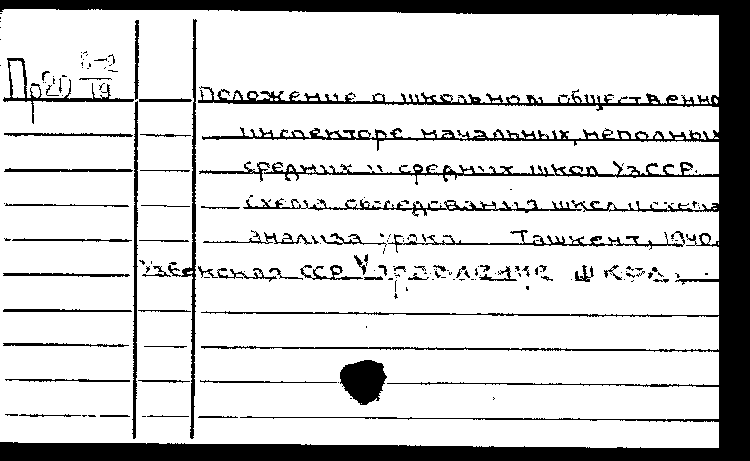 Пр20 6-2
19
Положение о школьном общественно
инспекторе начальных, неполных
средних и средних школ УзССР.
Схема обследования школ и схема
анализа урока. Ташкент, 1940.
Узбекская ССР Управление школ.